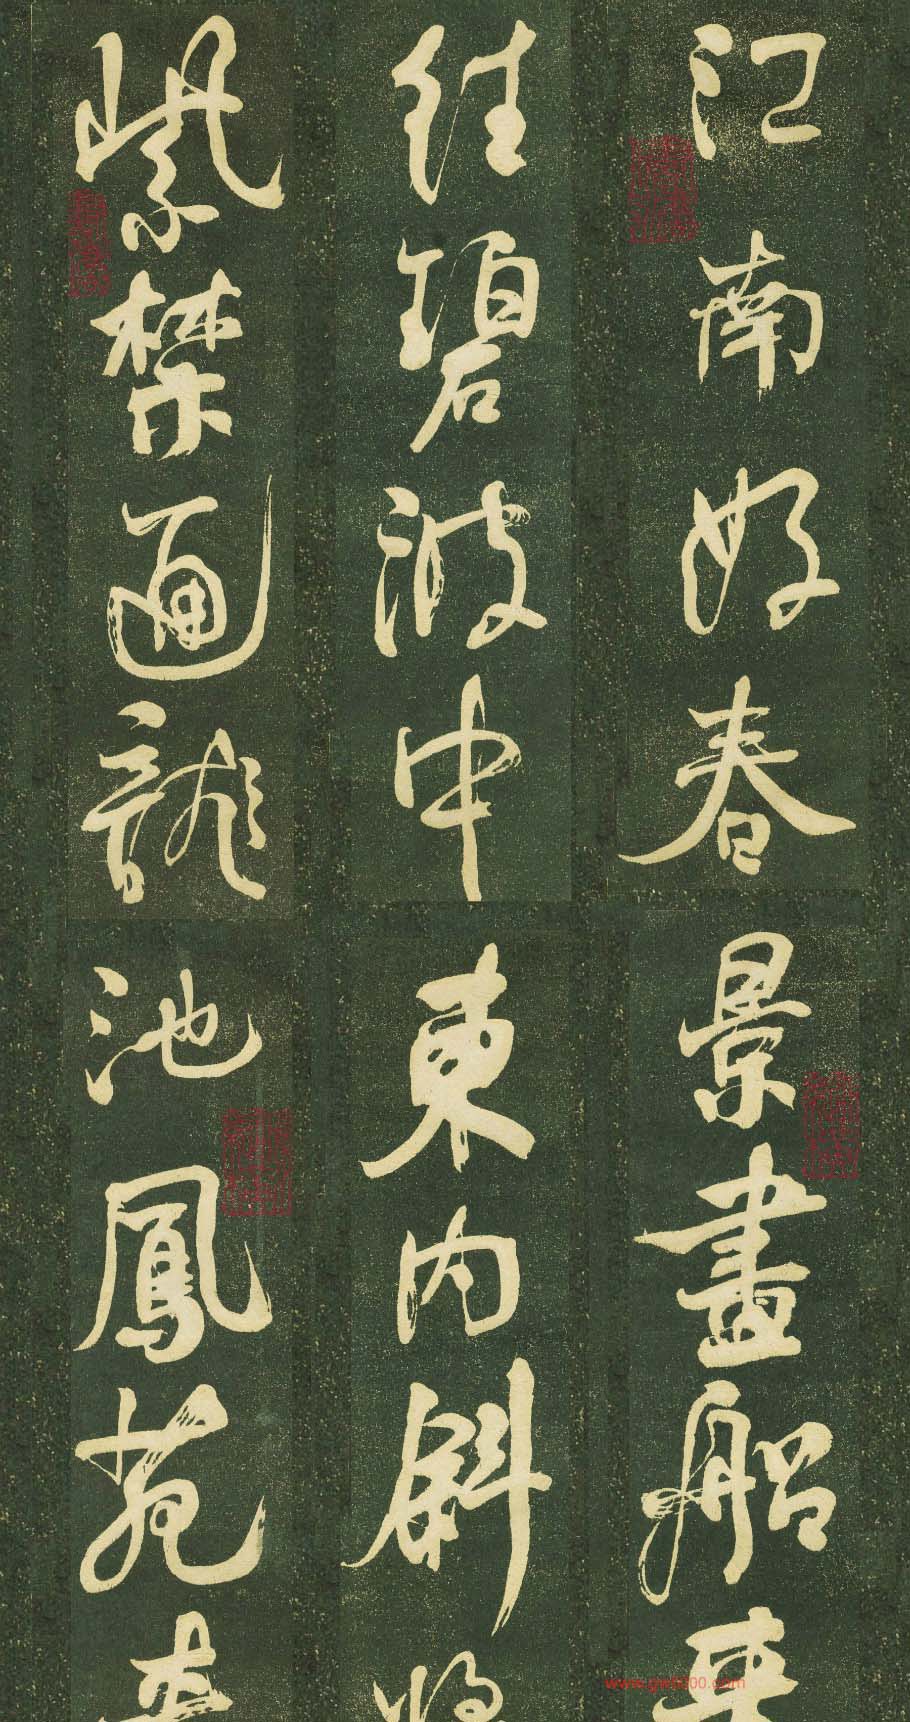 江南好春景畫船來
往碧波中東內斜將
紫禁通龍池鳳苑夾